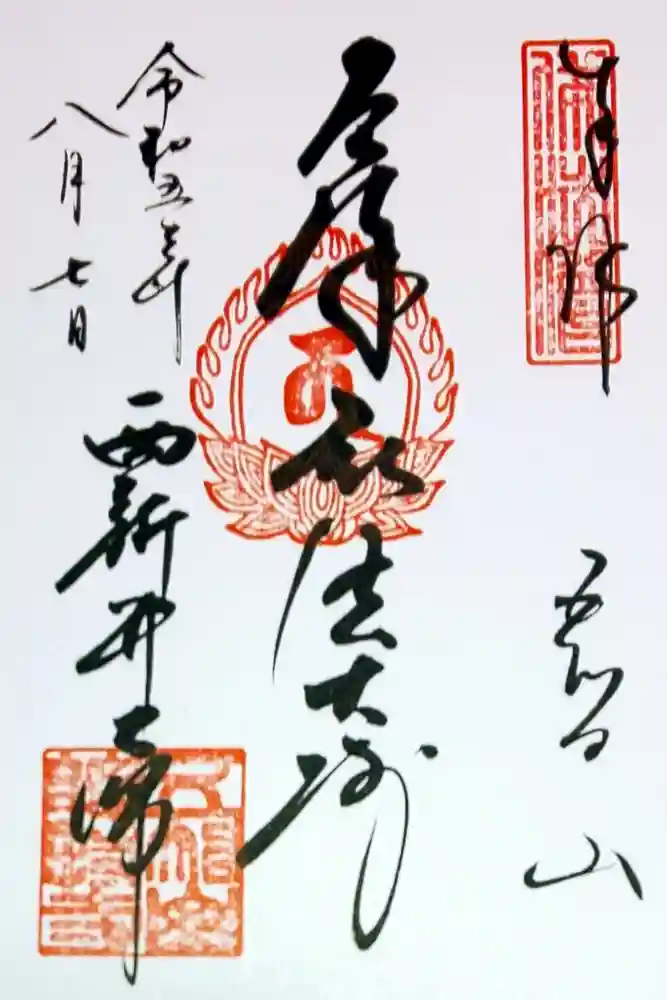 奉拝
五智山
厄除弘法大師
令和五年
八月七日
西新井大師